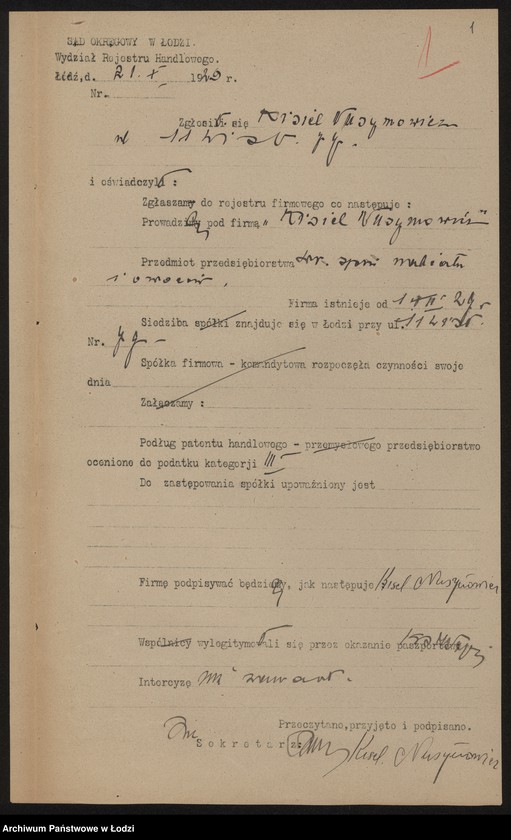 1
1
SĄD OKRĘGOWY W ŁODZI.
Wydział Rejestru Handlowego.
Łódź,d. 21. X 1929 r.
Nr.
Zgłosił się Kisiel Nusymowicz
w
i oświadczył :
Zgłaszamy do rejestru firmowego co następuje :
Prowadzi pod firmą "Kisiel Nusymowicz"
Przedmiot przedsiębiorstwa
i owoców.
Firma istnieje od 29
Siedziba spółki znajduje się w Łodzi przy ul.
Nr.
Spółka firmowa - komandytowa rozpoczęła czynności swoje
dnia
Załączamy :
Podług patentu handlowego - przemysłowego przedsiębiorstwo
ocenione do podatku kategorji III
Do zastępowania spółki upoważniony jest
Firmę podpisywać będzie, jak następuje Kisel Nusynowicz
Wspólnicy wylegitymował się przez okazanie
Intercyzę nie zawarł.
Przeczytano, przyjęto i podpisano.
Sekretarz:
Kisel Nusynowicz
Archiwum Państwowe w Łodzi